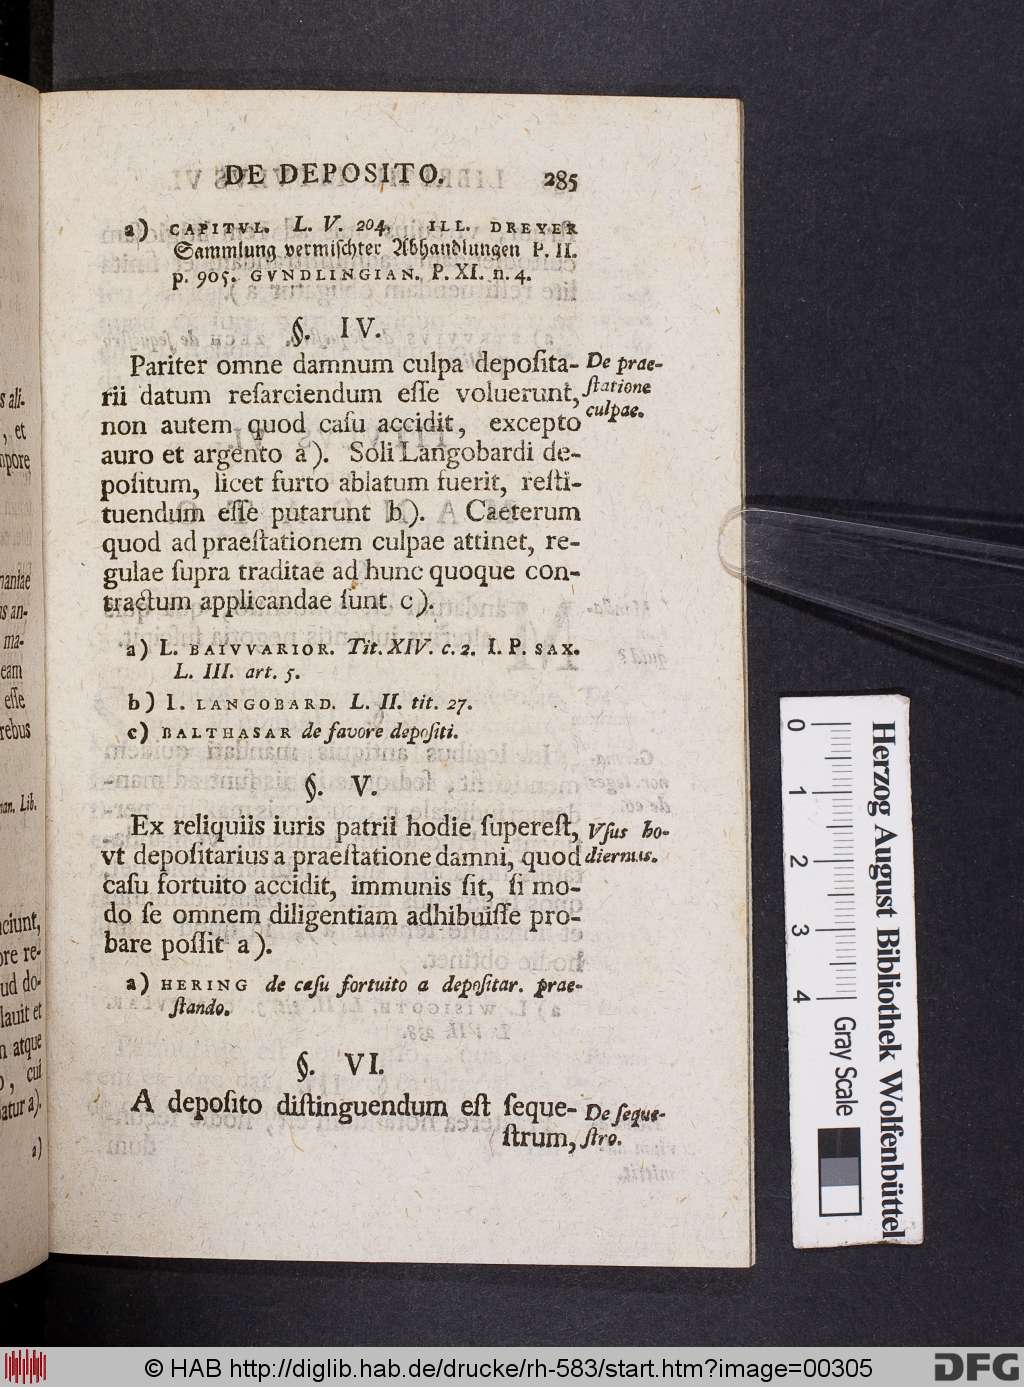 DE DEPOSITO. 285
a) CAPITVL. L. V. 204. ILL. DREYER
Sammlung vermischter Abhandlungen P. II.
p. 905. GVNDLINGIAN. P. XI. n. 4.
§. IV.
Pariter omne damnum culpa deposita-
rii datum resarciendum esse voluerunt,
non autem quod casu accidit, excepto
auro et argento a). Soli Langobardi de-
positum, licet furto ablatum fuerit, resti-
tuendum esse putarunt b). Caeterum
quod ad praestationem culpae attinet, re-
gulae supra traditae ad hunc quoque con-
tractum applicandae sunt c).
De prae-
statione
culpae.
a) L. BAIVVARIOR. Tit. XIV. c. 2. I. P. SAX.
L. III. art. 5.
b) l. LANGOBARD. L. II. tit. 27.
c) BALTHASAR de favore depositi.
§. V.
Ex reliquiis iuris patrii hodie superest,
vt depositarius a praestatione damni, quod
casu fortuito accidit, immunis sit, si mo-
do se omnem diligentiam adhibuisse pro-
bare possit a).
Vsus ho-
diernus.
a) HERING de casu fortuito a depositar. prae-
stando.
§. VI.
A deposito distinguendum est seque-
strum,
De seque-
stro.
s ali-
, et
mpore
maniae
is an-
ma-
eam
esse
rebus
man. Lib.
ciunt,
ore re-
ud do-
lauit et
n atque
o, cui
atur a).
a)
0 1 2 3 4
Gray Scale
Herzog August Bibliothek Wolfenbüttel
© HAB http://diglib.hab.de/drucke/rh-583/start.htm?image=00305
DFG